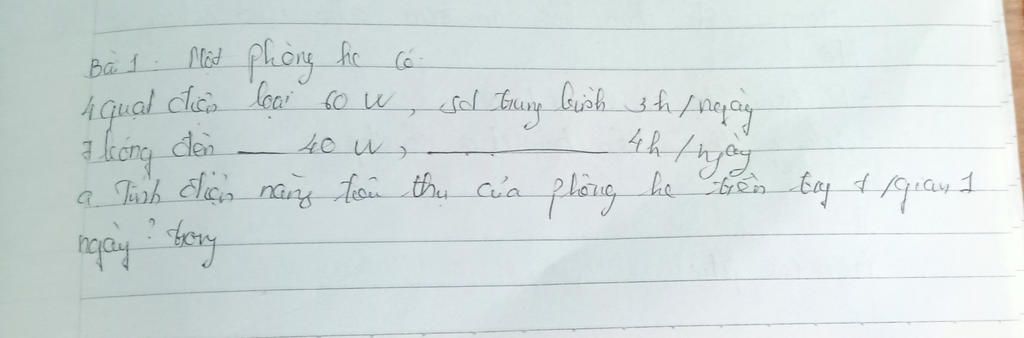 Bài 1. Một phòng hc có:
4 quạt điện loại 60 W, sd trung bình 3h/ngày
7 bóng đèn — 40 W, — 4h/ngày
a. Tính điện năng tiêu thụ của phòng hc trên t/gian 1
ngày? trong